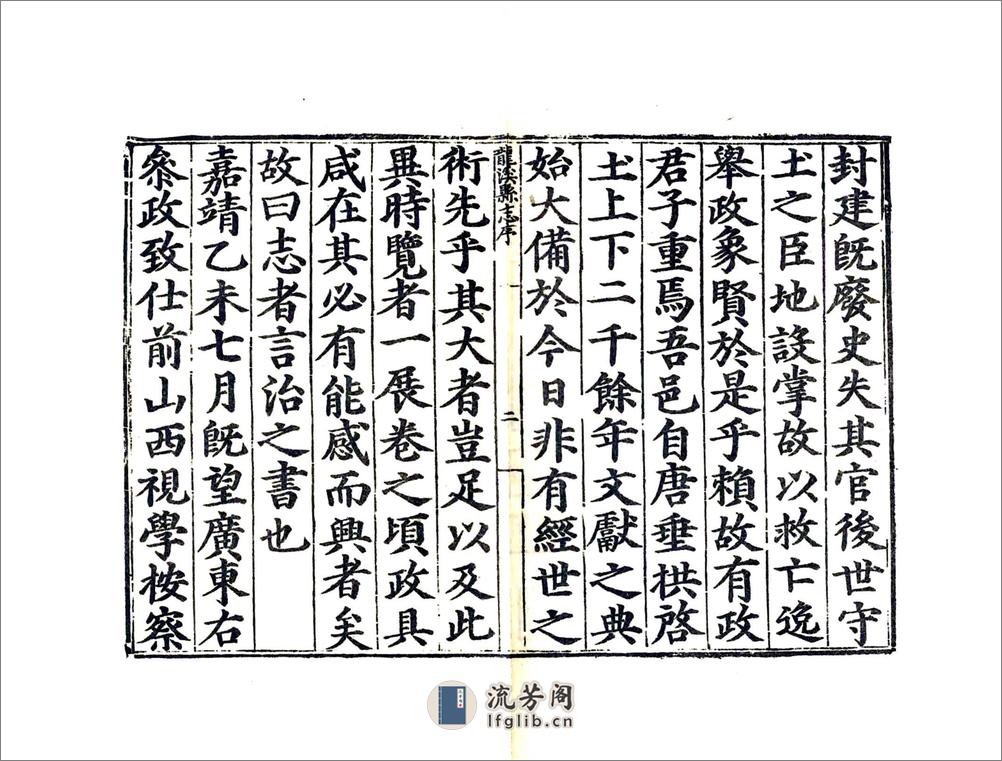 封建旣廢史失其官後世守
土之臣地設掌故以救亡逸
舉政象賢於是乎賴故有政
君子重焉吾邑自唐垂拱啓
土上下二千餘年文獻之典
始大備於今日非有經世之
龍溪縣志序
二
術先乎其大者豈足以及此
異時覽者一展卷之頃政具
咸在其必有能感而興者矣
故曰志者言治之書也
嘉靖乙未七月旣望廣東右
叅政致仕前山西視學桉察
流芳阁
lfglib.cn